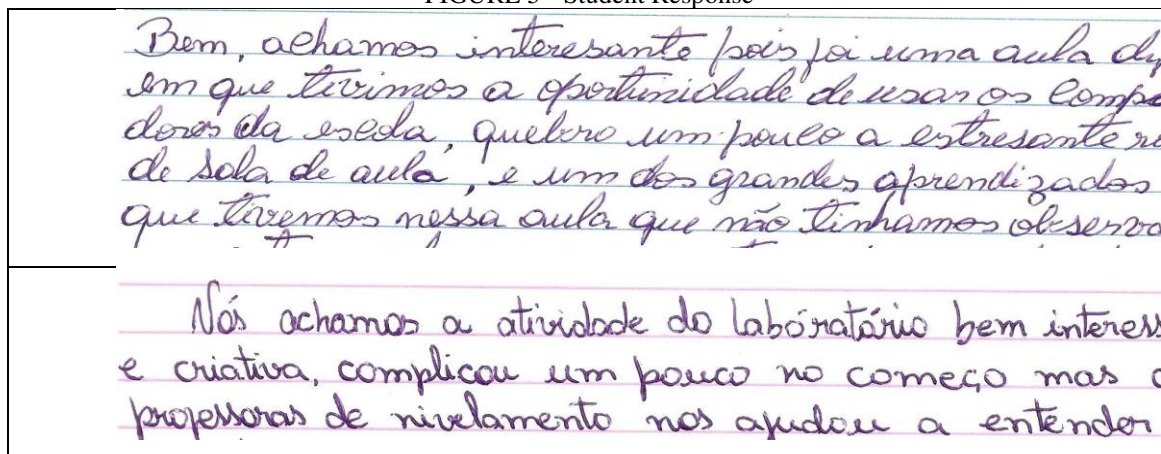 FIGURE 3 – Student Response
Bem, achamos interesante pois foi uma aula
em que tivimos a oportunidade de usar os Compa
dores da escola, quebro um pouco a estresante
de sala de aula, e um dos grandes aprendizados
que tivemos nessa aula que não tinhamos observa
Nós achamos a atividade do laboratório bem interess
e criativa, complicou um pouco no começo mas
professoras de nivelamento nos ajudou a entender